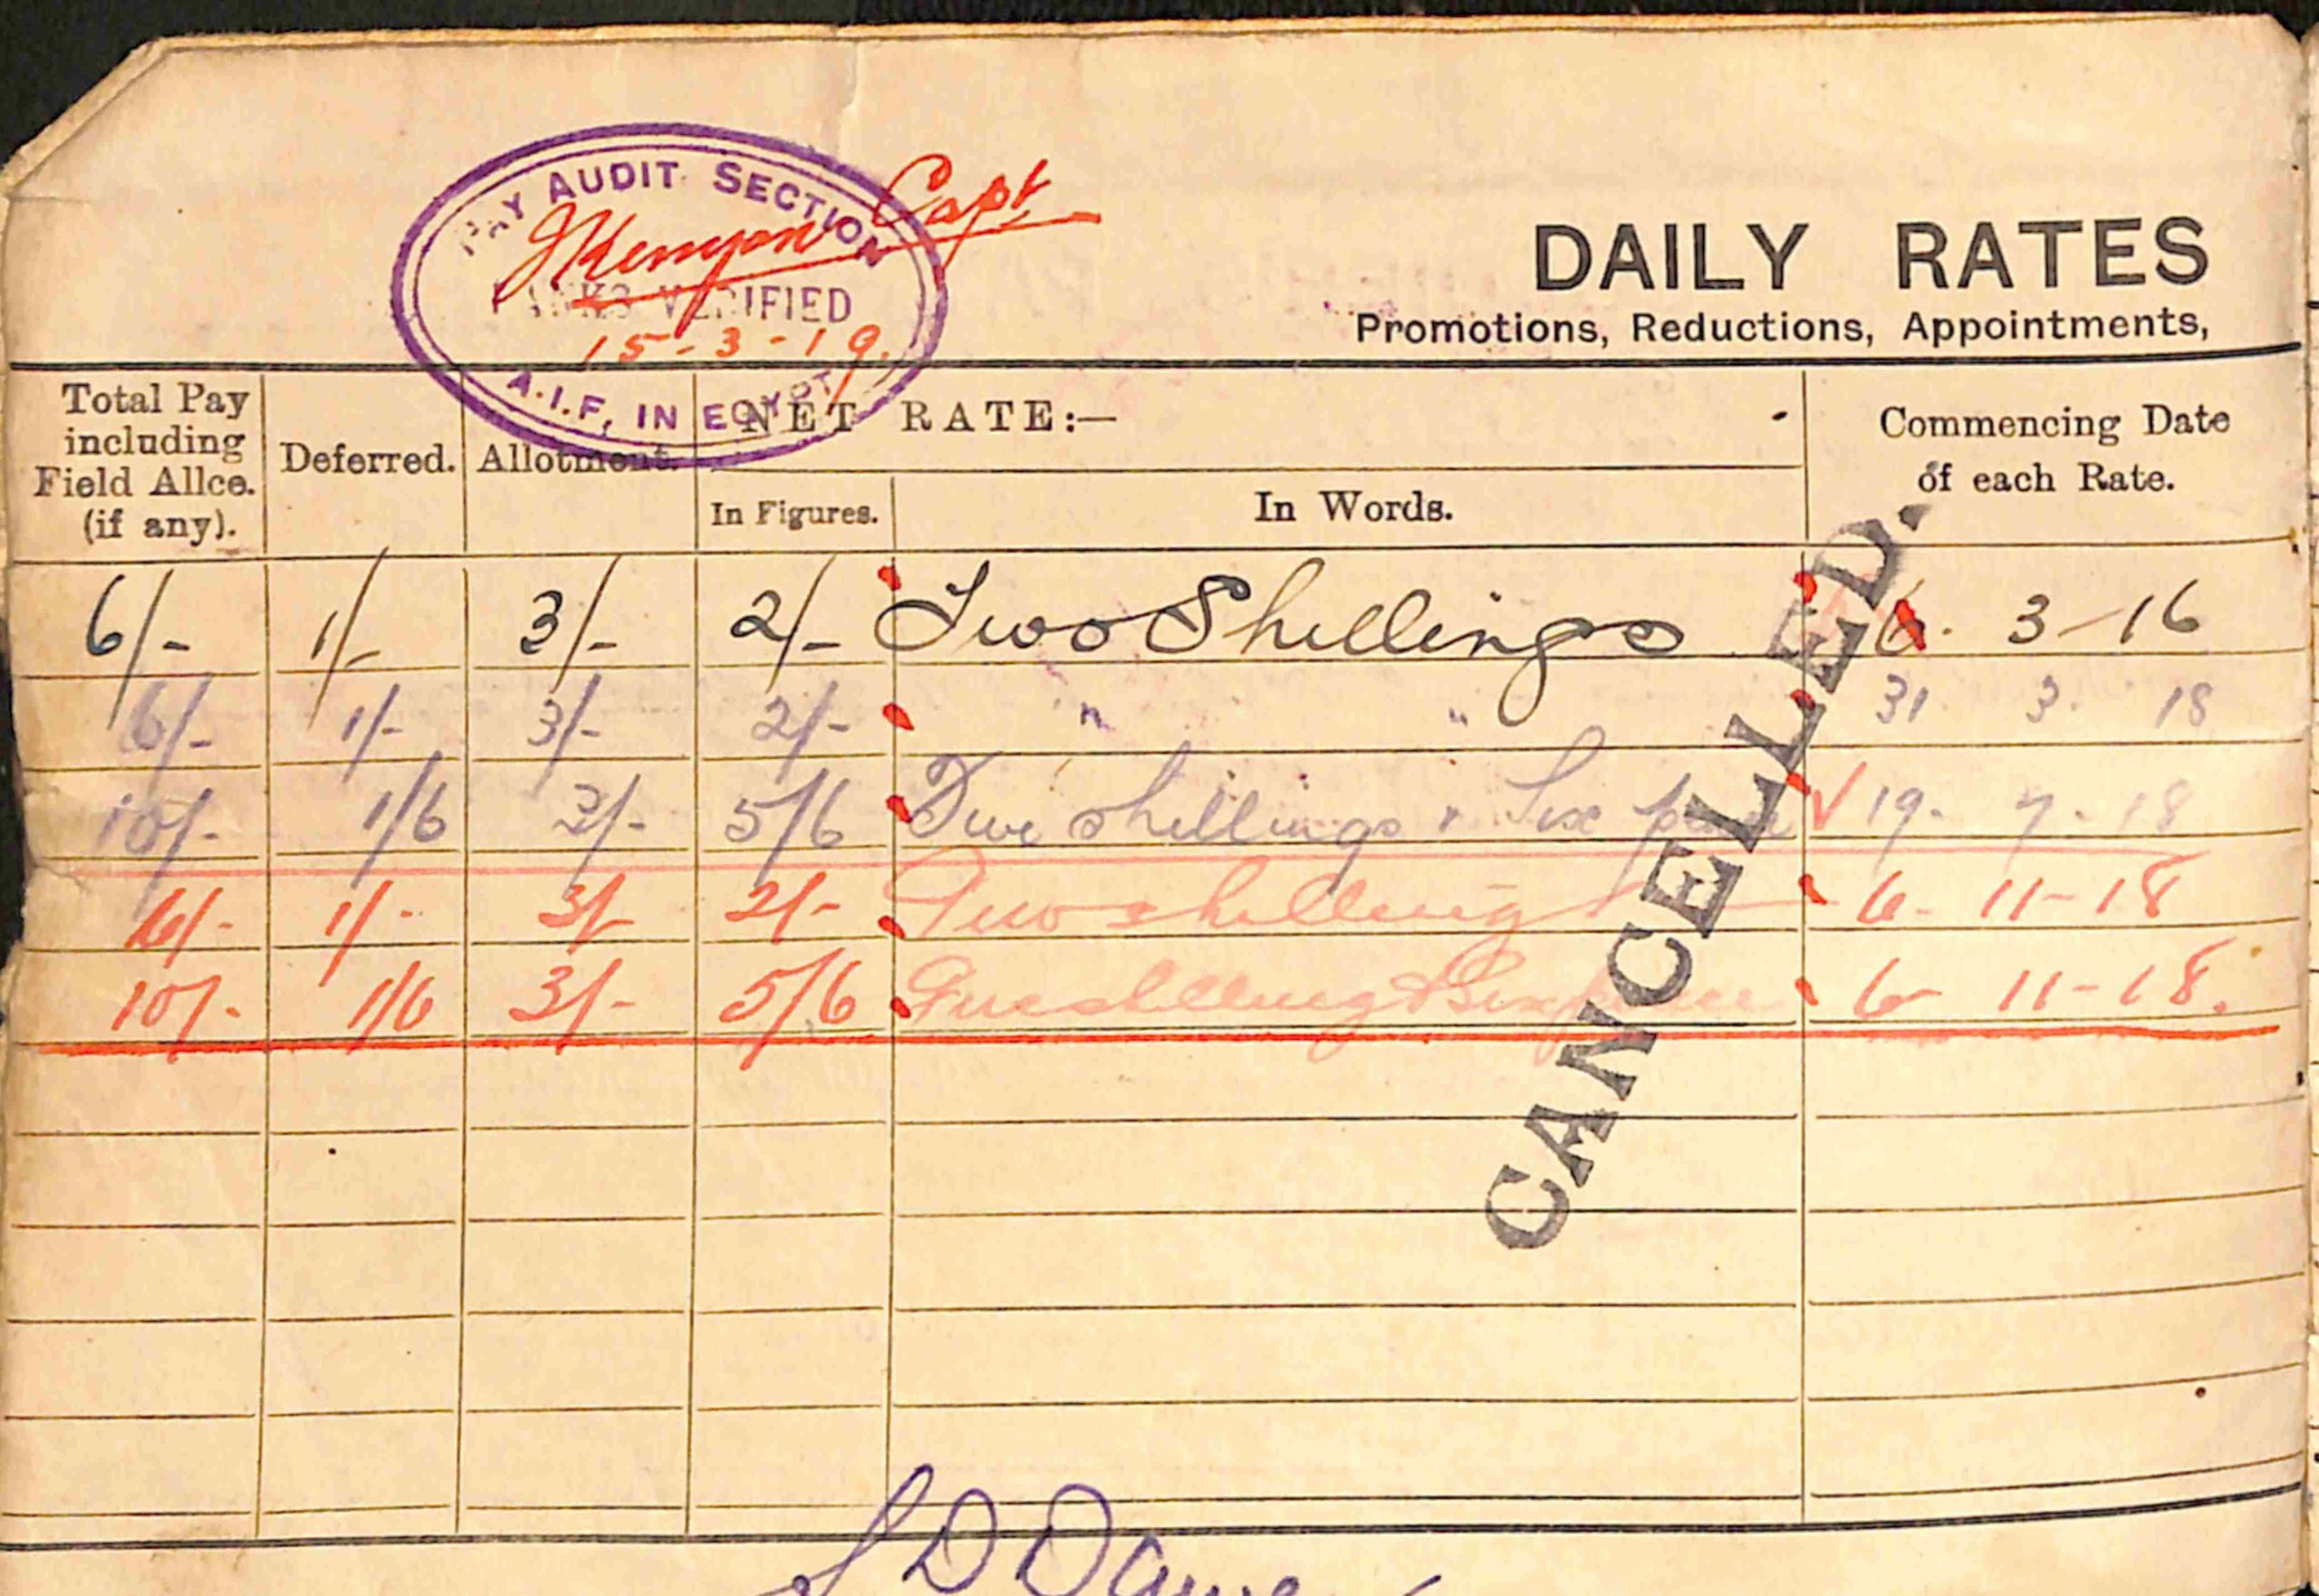 PAY AUDIT SECTION
JKenyon Capt
RANKS VERIFIED
15-3-19.
A.I.F, IN EGYPT
DAILY RATES
Promotions, Reductions, Appointments,
Total Pay including Field Allce. (if any).
Deferred.
Allotment.
NET RATE:—
In Figures.
In Words.
Commencing Date of each Rate.
6/- 1/- 3/- 2/- Two Shillings 6. 3-16
6/- 1/- 3/- 2/- " " 31. 3. 18
10/- 1/6 3/- 5/6 Five shillings & Six pence 19. 7. 18
6/- 1/- 3/- 2/- Two shilling 6- 11-18
10/- 1/6 3/- 5/6 Five shilling & Sixpence 6- 11-18.
CANCELLED.